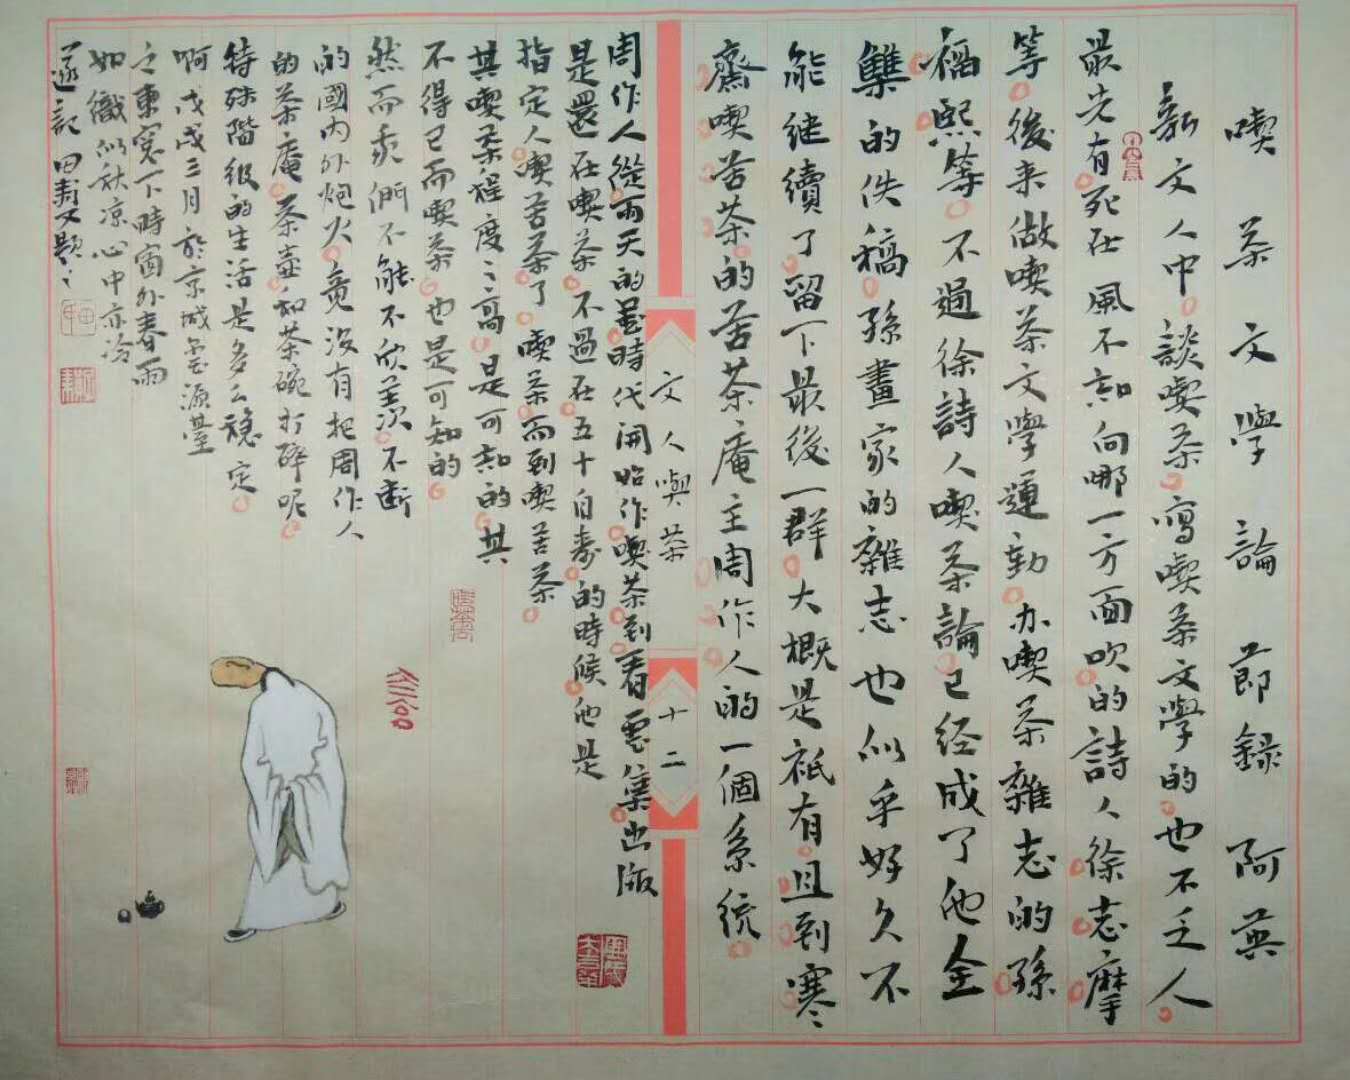 喫茶文學論節錄 阿英
新文人中談喫茶寫喫茶文學的也不乏人
最先有死在風不知向哪一方面吹的詩人徐志摩
等後来做喫茶文學運動办喫茶雜志的孫
福熙等不過徐詩人喫茶論已经成了他全
集的佚稿孫畫家的雜志也似乎好久不
能继續了留下最後一群大概是祇有且到寒
齋喫苦茶的苦茶庵主周作人的一個系統
文人喫茶
十二
周作人從雨天的書時代開始作喫茶到看雲集出版
是還在喫茶不過在五十自壽的時候他是
指定人喫苦茶了喫茶而到喫苦茶
其喫茶程度之高是可知的其
不得已而喫茶也是可知的
然而我們不能不欣羡不斷
的國内外炮火竟沒有把周作人
的茶庵茶壺和茶碗打碎呢
特殊階级的生活是多么穏定
啊戊戌三月於京城雲源臺
之東窓下時窗外春雨
如織似秋凉心中亦冷
遂記田壽又題